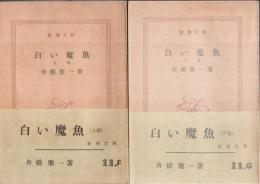 新潮文庫
白い魔魚
上巻
舟橋聖一著
白い魔魚 (上巻)
新潮文庫
舟橋聖一著
11.F
新潮文庫
白い魔魚
下巻
舟橋聖一著
白い魔魚 (下巻)
新潮文庫
舟橋聖一著
11.G